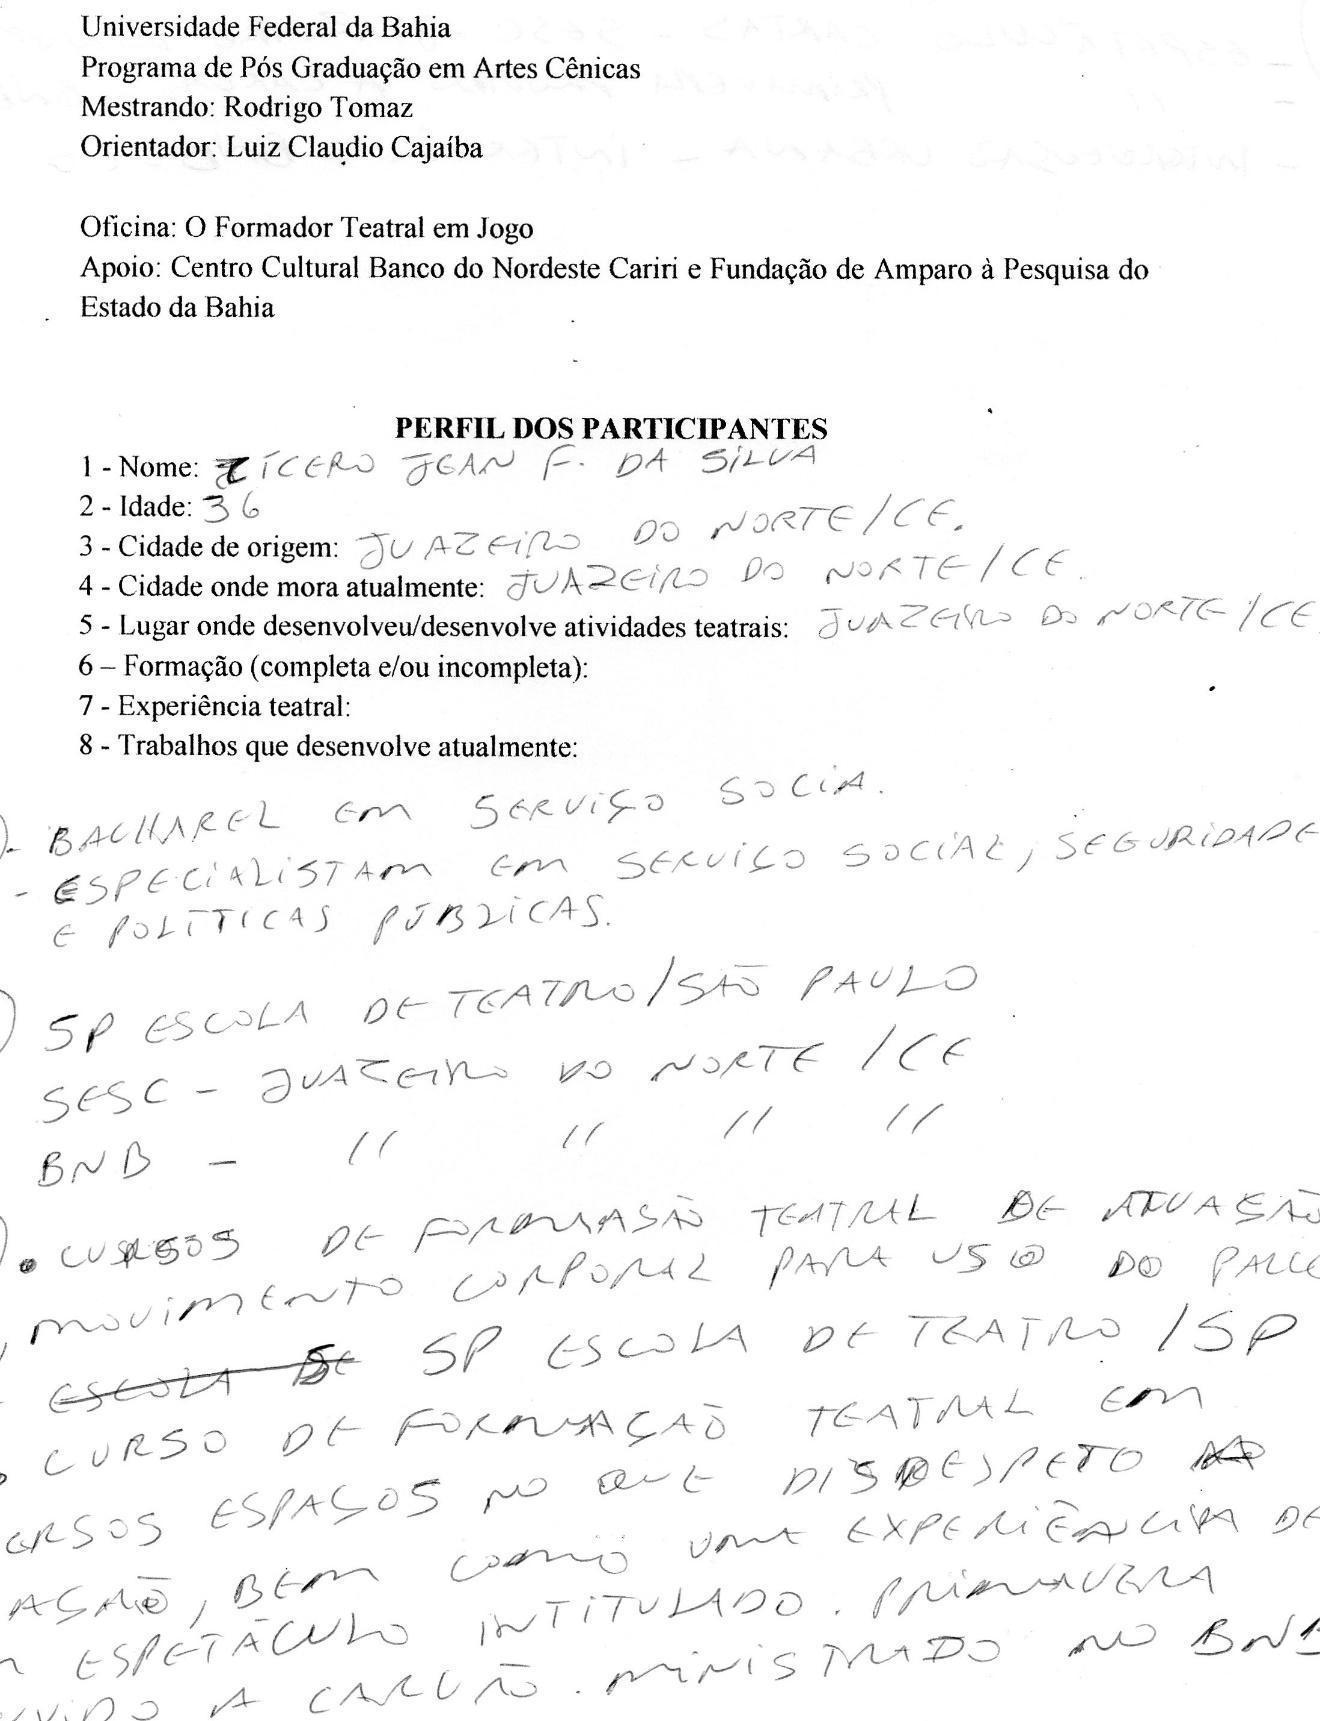 Universidade Federal da Bahia
Programa de Pós Graduação em Artes Cênicas
Mestrando: Rodrigo Tomaz
Orientador: Luiz Claudio Cajaíba
Oficina: O Formador Teatral em Jogo
Apoio: Centro Cultural Banco do Nordeste Cariri e Fundação de Amparo à Pesquisa do
Estado da Bahia
PERFIL DOS PARTICIPANTES
1 - Nome: CÍCERO JEAN F. DA SILVA
2 - Idade: 36
3 - Cidade de origem: JUAZEIRO DO NORTE/CE.
4 - Cidade onde mora atualmente: JUAZEIRO DO NORTE/CE.
5 - Lugar onde desenvolveu/desenvolve atividades teatrais: JUAZEIRO DO NORTE/CE
6 – Formação (completa e/ou incompleta):
7 - Experiência teatral:
8 - Trabalhos que desenvolve atualmente:
) - BACHAREL EM SERVIÇO SOCIA.
- ESPECIALISTAM EM SERVIÇO SOCIAL, SEGURIDADE
E POLÍTICAS PÚBLICAS.
) SP ESCOLA DE TEATRO/SÃO PAULO
SESC - JUAZEIRO DO NORTE /CE
BNB - // // // //
) • CURSOS DE FORMASÃO TEATRAL DE ATUASÃO
, MOVIMENTO CORPORAL PARA USO DO PALC
ESCOLA DE SP ESCOLA DE TEATRO /SP
. CURSO DE FORMAÇÃO TEATRAL EM
ERSOS ESPAÇOS NO QUE
, BEM COMO UMA EXPERIÊNCIA DE
ESPETÁCULO INTITULADO. PRIMAVERA
A CARVÃO. MINISTRADO NO BNB